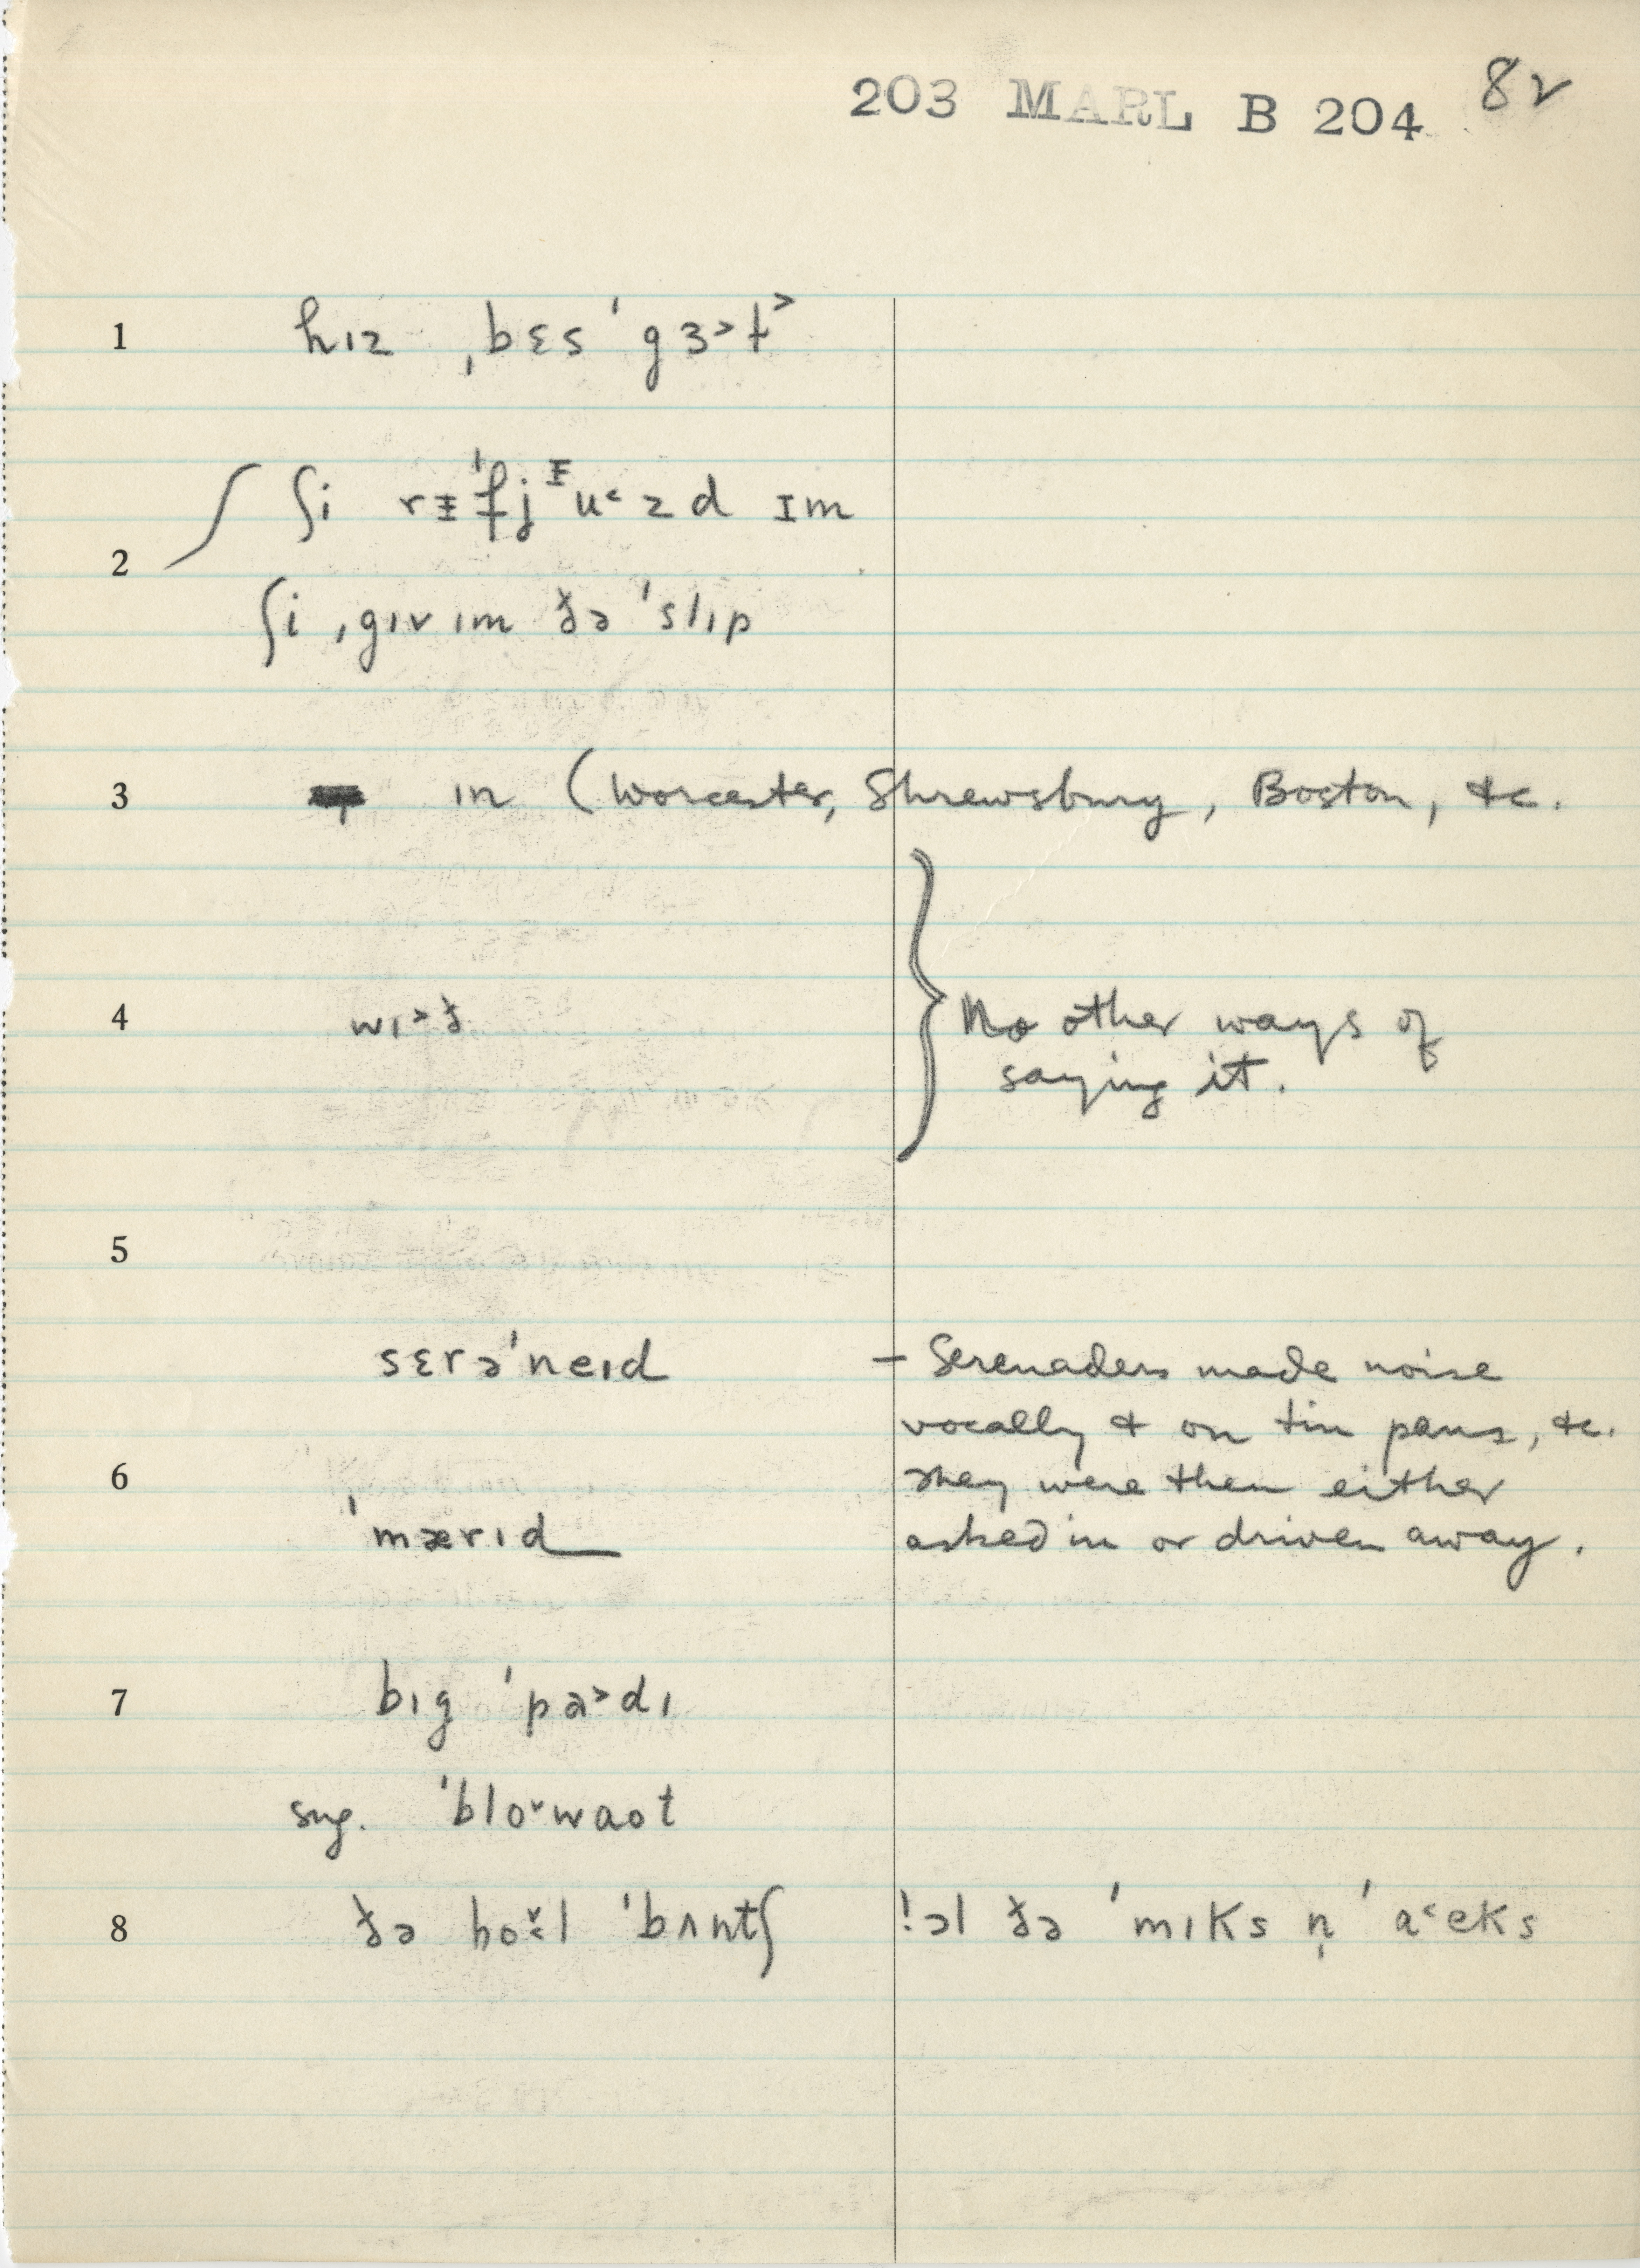 203 MARL B 204 82
1 hɪz ˌbɛs ˈgɜ˃ɫ˃
2 ʃi rᵻˈfjᵻu˂zd ɪm
ʃi ˌgɪv ɪm ðə ˈslɪp
3 ɪn (Worcester, Shrewsbury, Boston, &c.
4 wɪ˃ð } No other ways of
saying it.
5
sɛrəˈneɪd – Serenaders made noise
vocally & on tin pans, &c.
6 They were then either
ˈmærɪd asked in or driven away.
7 bɪg ˈpa˃dɪ
sug. ˈblo˅waot
8 ðə ho˅l ˈbʌntʃ !ɔl ðə ˈmɪks n̩ ˈa˂eks